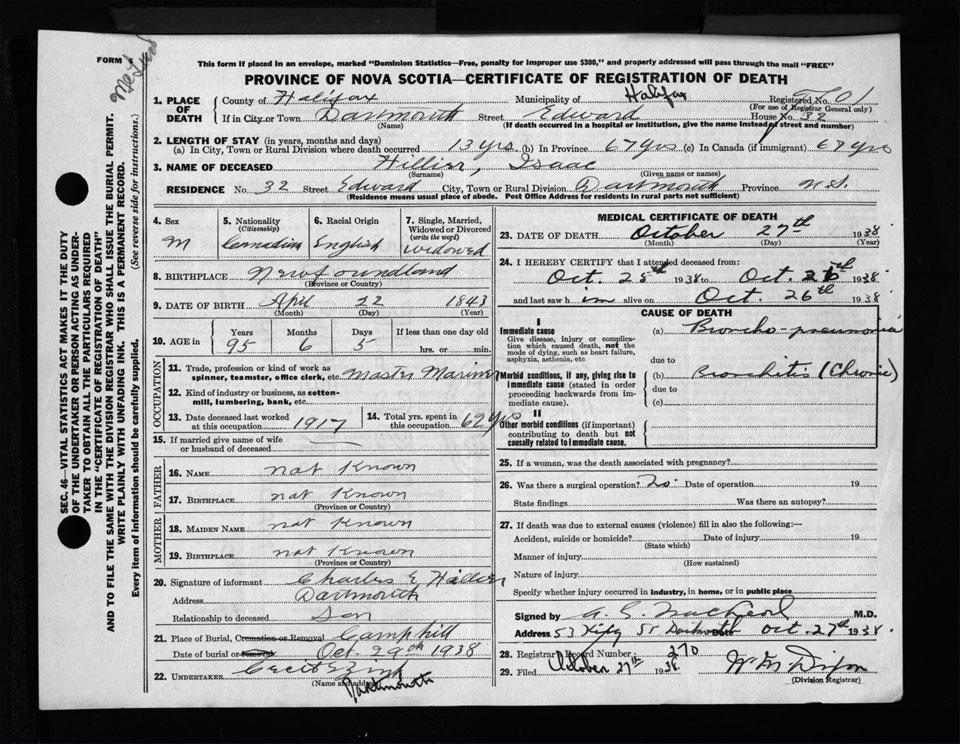 FORM 6
McLeod
This form if placed in an envelope, marked "Dominion Statistics—Free, penalty for improper use $300," and properly addressed will pass through the mail "FREE"
PROVINCE OF NOVA SCOTIA—CERTIFICATE OF REGISTRATION OF DEATH
SEC. 46—VITAL STATISTICS ACT MAKES IT THE DUTY
OF THE UNDERTAKER OR PERSON ACTING AS UNDER-
TAKER TO OBTAIN ALL THE PARTICULARS REQUIRED
IN THE "CERTIFICATE OF REGISTRATION OF DEATH"
AND TO FILE THE SAME WITH THE DIVISION REGISTRAR WHO SHALL ISSUE THE BURIAL PERMIT.
WRITE PLAINLY WITH UNFADING INK. THIS IS A PERMANENT RECORD.
Every item of information should be carefully supplied. (See reverse side for instructions.)
1. PLACE OF DEATH
County of Halifax Municipality of Halifax Registered No. 01
(For use of Registrar General only)
If in City or Town Dartmouth Street Edward House No. 32
(Name) (If death occurred in a hospital or institution, give the name instead of street and number)
2. LENGTH OF STAY (in years, months and days)
(a) In City, Town or Rural Division where death occurred 13 yrs (b) In Province 67 yrs (c) In Canada (if immigrant) 67 yrs
3. NAME OF DECEASED Hillier, Isaac
(Surname) (Given name or names)
RESIDENCE No. 32 Street Edward City, Town or Rural Division Dartmouth Province N.S.
(Residence means usual place of abode. Post Office Address for residents in rural parts not sufficient)
4. Sex M
5. Nationality (Citizenship) Canadian
6. Racial Origin English
7. Single, Married, Widowed or Divorced (write the word) Widowed
8. BIRTHPLACE Newfoundland
(Province or Country)
9. DATE OF BIRTH April 22 1843
(Month) (Day) (Year)
10. AGE in Years 95 Months 6 Days 5 If less than one day old hrs. or min.
OCCUPATION
11. Trade, profession or kind of work as spinner, teamster, office clerk, etc. Master Mariner
12. Kind of industry or business, as cotton-mill, lumbering, bank, etc.
13. Date deceased last worked at this occupation 1917
14. Total yrs. spent in this occupation 62 yrs
15. If married give name of wife or husband of deceased
FATHER
16. NAME not known
17. BIRTHPLACE not known
(Province or Country)
MOTHER
18. MAIDEN NAME not known
19. BIRTHPLACE not known
(Province or Country)
20. Signature of informant Charles E Hillier
Address Dartmouth
Relationship to deceased Son
21. Place of Burial, Cremation or Removal Camphill
Date of burial or removal Oct 29th 1938
22. UNDERTAKER Cecil E Zink
(Name and address)
Dartmouth
MEDICAL CERTIFICATE OF DEATH
23. DATE OF DEATH October 27th 1938
(Month) (Day) (Year)
24. I HEREBY CERTIFY that I attended deceased from:
Oct. 25th 1938 to Oct. 26th 1938
and last saw him alive on Oct. 26th 1938
CAUSE OF DEATH
I
Immediate cause
Give disease, injury or complication which caused death, not the mode of dying, such as heart failure, asphyxia, asthenia, etc
(a) Broncho-pneumonia
due to
Morbid conditions, if any, giving rise to immediate cause (stated in order proceeding backwards from immediate cause).
(b) Bronchitis (Chronic)
due to
(c)
II
Other morbid conditions (if important) contributing to death but not causally related to immediate cause.
25. If a woman, was the death associated with pregnancy?
26. Was there a surgical operation? No. Date of operation 19
State findings Was there an autopsy?
27. If death was due to external causes (violence) fill in also the following:—
Accident, suicide or homicide? Date of injury 19
(State which)
Manner of injury
(How sustained)
Nature of injury
Specify whether injury occurred in industry, in home, or in public place
Signed by M.D.
Address 53 St Dartmouth Date Oct. 27th 1938
28. Registrar Record Number 270
29. Filed October 27th 1938. W M Dixon
(Division Registrar)